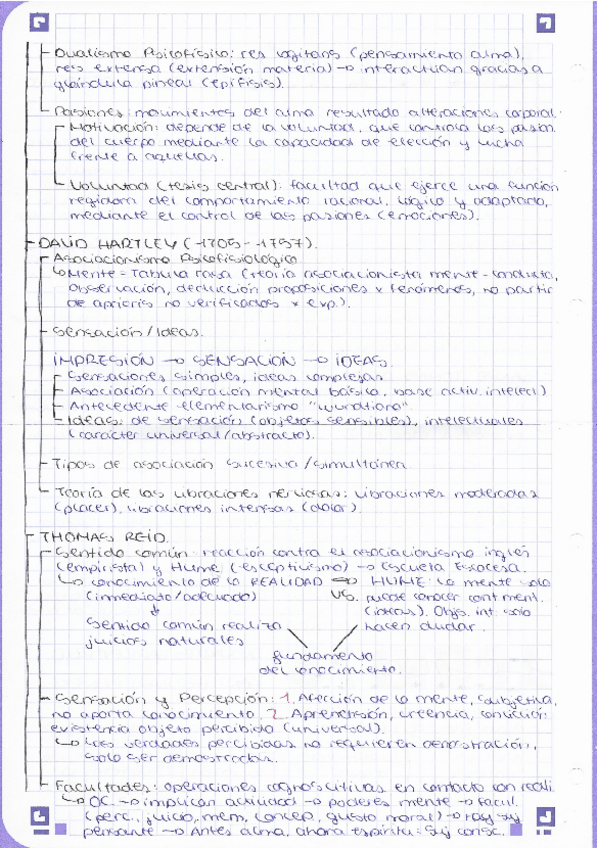 Dualismo Psicofísico: res cogitans (pensamiento alma),
res extensa (extensión materia) → interactúan gracias a
glándula pineal (epífisis).
Pasiones: movimientos del alma resultado alteraciones corporal.
Motivación: depende de la voluntad, que controla las pasion.
del cuerpo mediante la capacidad de elección y lucha
frente a aquellas.
Voluntad (tesis central): facultad que ejerce una función
regidora del comportamiento racional, lógico y adaptado,
mediante el control de las pasiones (emociones).
DAVID HARTLEY (-1705--1757).
Asociacionismo Psicofisiológico
↳ Mente = Tabula rasa (teoría asociacionista mente-conducta,
observación, deducción proposiciones x fenómenos, no partir
de aprioris no verificados x exp.).
Sensación/Ideas.
IMPRESIÓN → SENSACIÓN → IDEAS.
Sensaciones simples, ideas complejas
Asociación (operación mental básica, base activ. intelect)
Antecedente elementarismo "wundtiano".
Ideas: de sensación (objetos sensibles), intelectuales
(carácter universal/abstracto).
Tipos de asociación sucesiva/simultánea
Teoría de las vibraciones nerviosas: vibraciones moderadas
(placer), vibraciones intensas (dolor).
THOMAS REID.
Sentido común: reacción contra el asociacionismo inglés
(empirista) y Hume (escepticismo) → Escuela Escocesa.
↳ conocimiento de la REALIDAD ⇔ HUME: la mente solo
(inmediato/adecuado) vs. puede conocer cont ment.
↓ (ideas). Objs. int solo
Sentido común realiza hacen dudar.
juicios naturales
fundamento
del conocimiento.
Sensación y Percepción: 1. Afección de la mente, subjetiva,
no aporta conocimiento. 2. Aprehensión, creencia, convicción
existencia objeto percibido (universal).
↳ Las verdades percibidas no requieren demostración,
solo ser demostradas.
Facultades: operaciones cognoscitivas en contacto con reali.
↳ OC. → implican actividad → poderes mente → facul.
(perc., juicio, mem, concep, gusto moral) → hay suj
pensante → Antes alma, ahora espíritu = Suj consc.